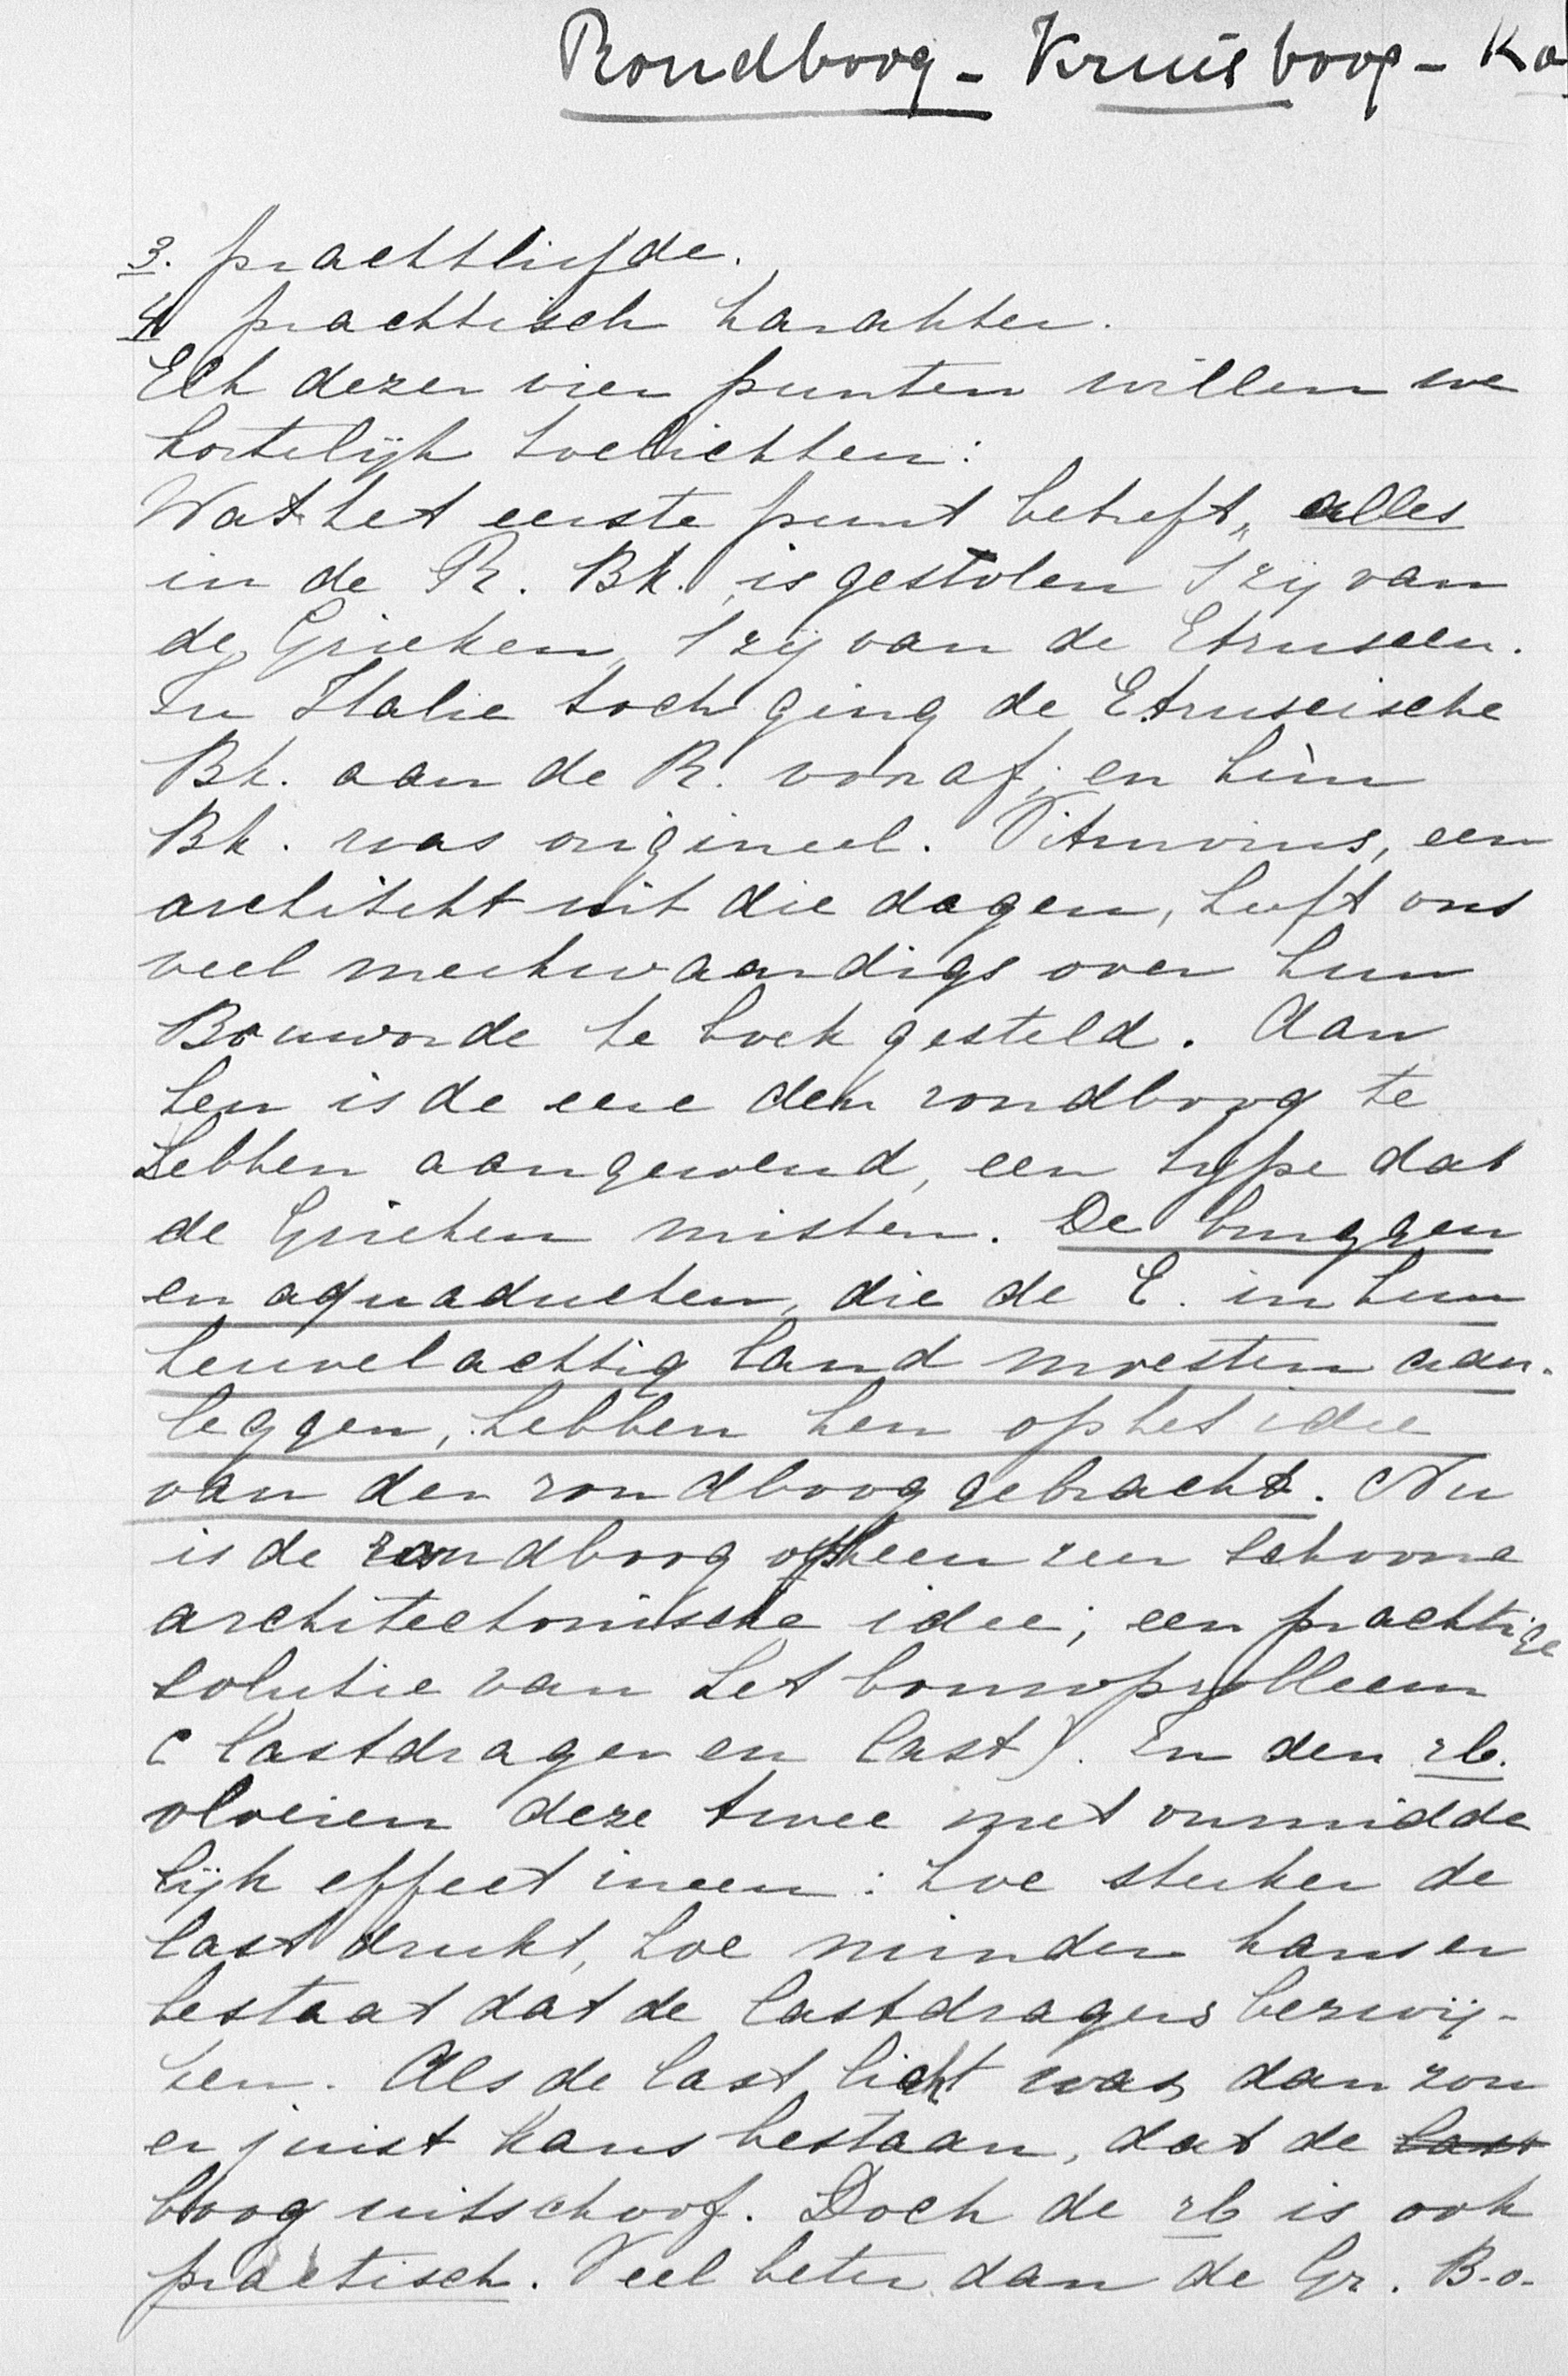 Rondboog - Kruisboog - Ko
3. prachtliefde.
4 practisch karakter.
Elk dezer vier punten willen we
kortelijk toelichten:
Wat het eerste punt betreft, alles
in de R. Bk. is gestolen 't zij van
de Grieken, 't zij van de Etruscen.
In Italie toch ging de Etruscische
Bk. aan de R. vooraf; en hùn
Bk. was origineel. Vitruvius, een
architekt uit die dagen, heeft ons
veel merkwaardigs over hun
Bouworde te boek gesteld. Aan
hen is de eere den rondboog te
hebben aangewend, een type dat
de Grieken misten. De bruggen
en aquaducten, die de E. in hun
heuvelachtig land moesten aan-
leggen, hebben hen op het idee
van den rondboog gebracht. Nu
is de rondboog opheen zeer schoone
architectonische idee; een prachtige
solutie van het bouwprobleem
(lastdrager en last). In den rb.
vloeien deze twee met onmidde
lijk effect ineen: hoe sterker de
last drukt, hoe minder kans er
bestaat dat de lastdragers bezwij-
ken. Als de last licht was, dan zou
er juist kans bestaan, dat de last
boog uitschoof. Doch de rb is ook
practisch. Veel beter dan de Gr. B.o.